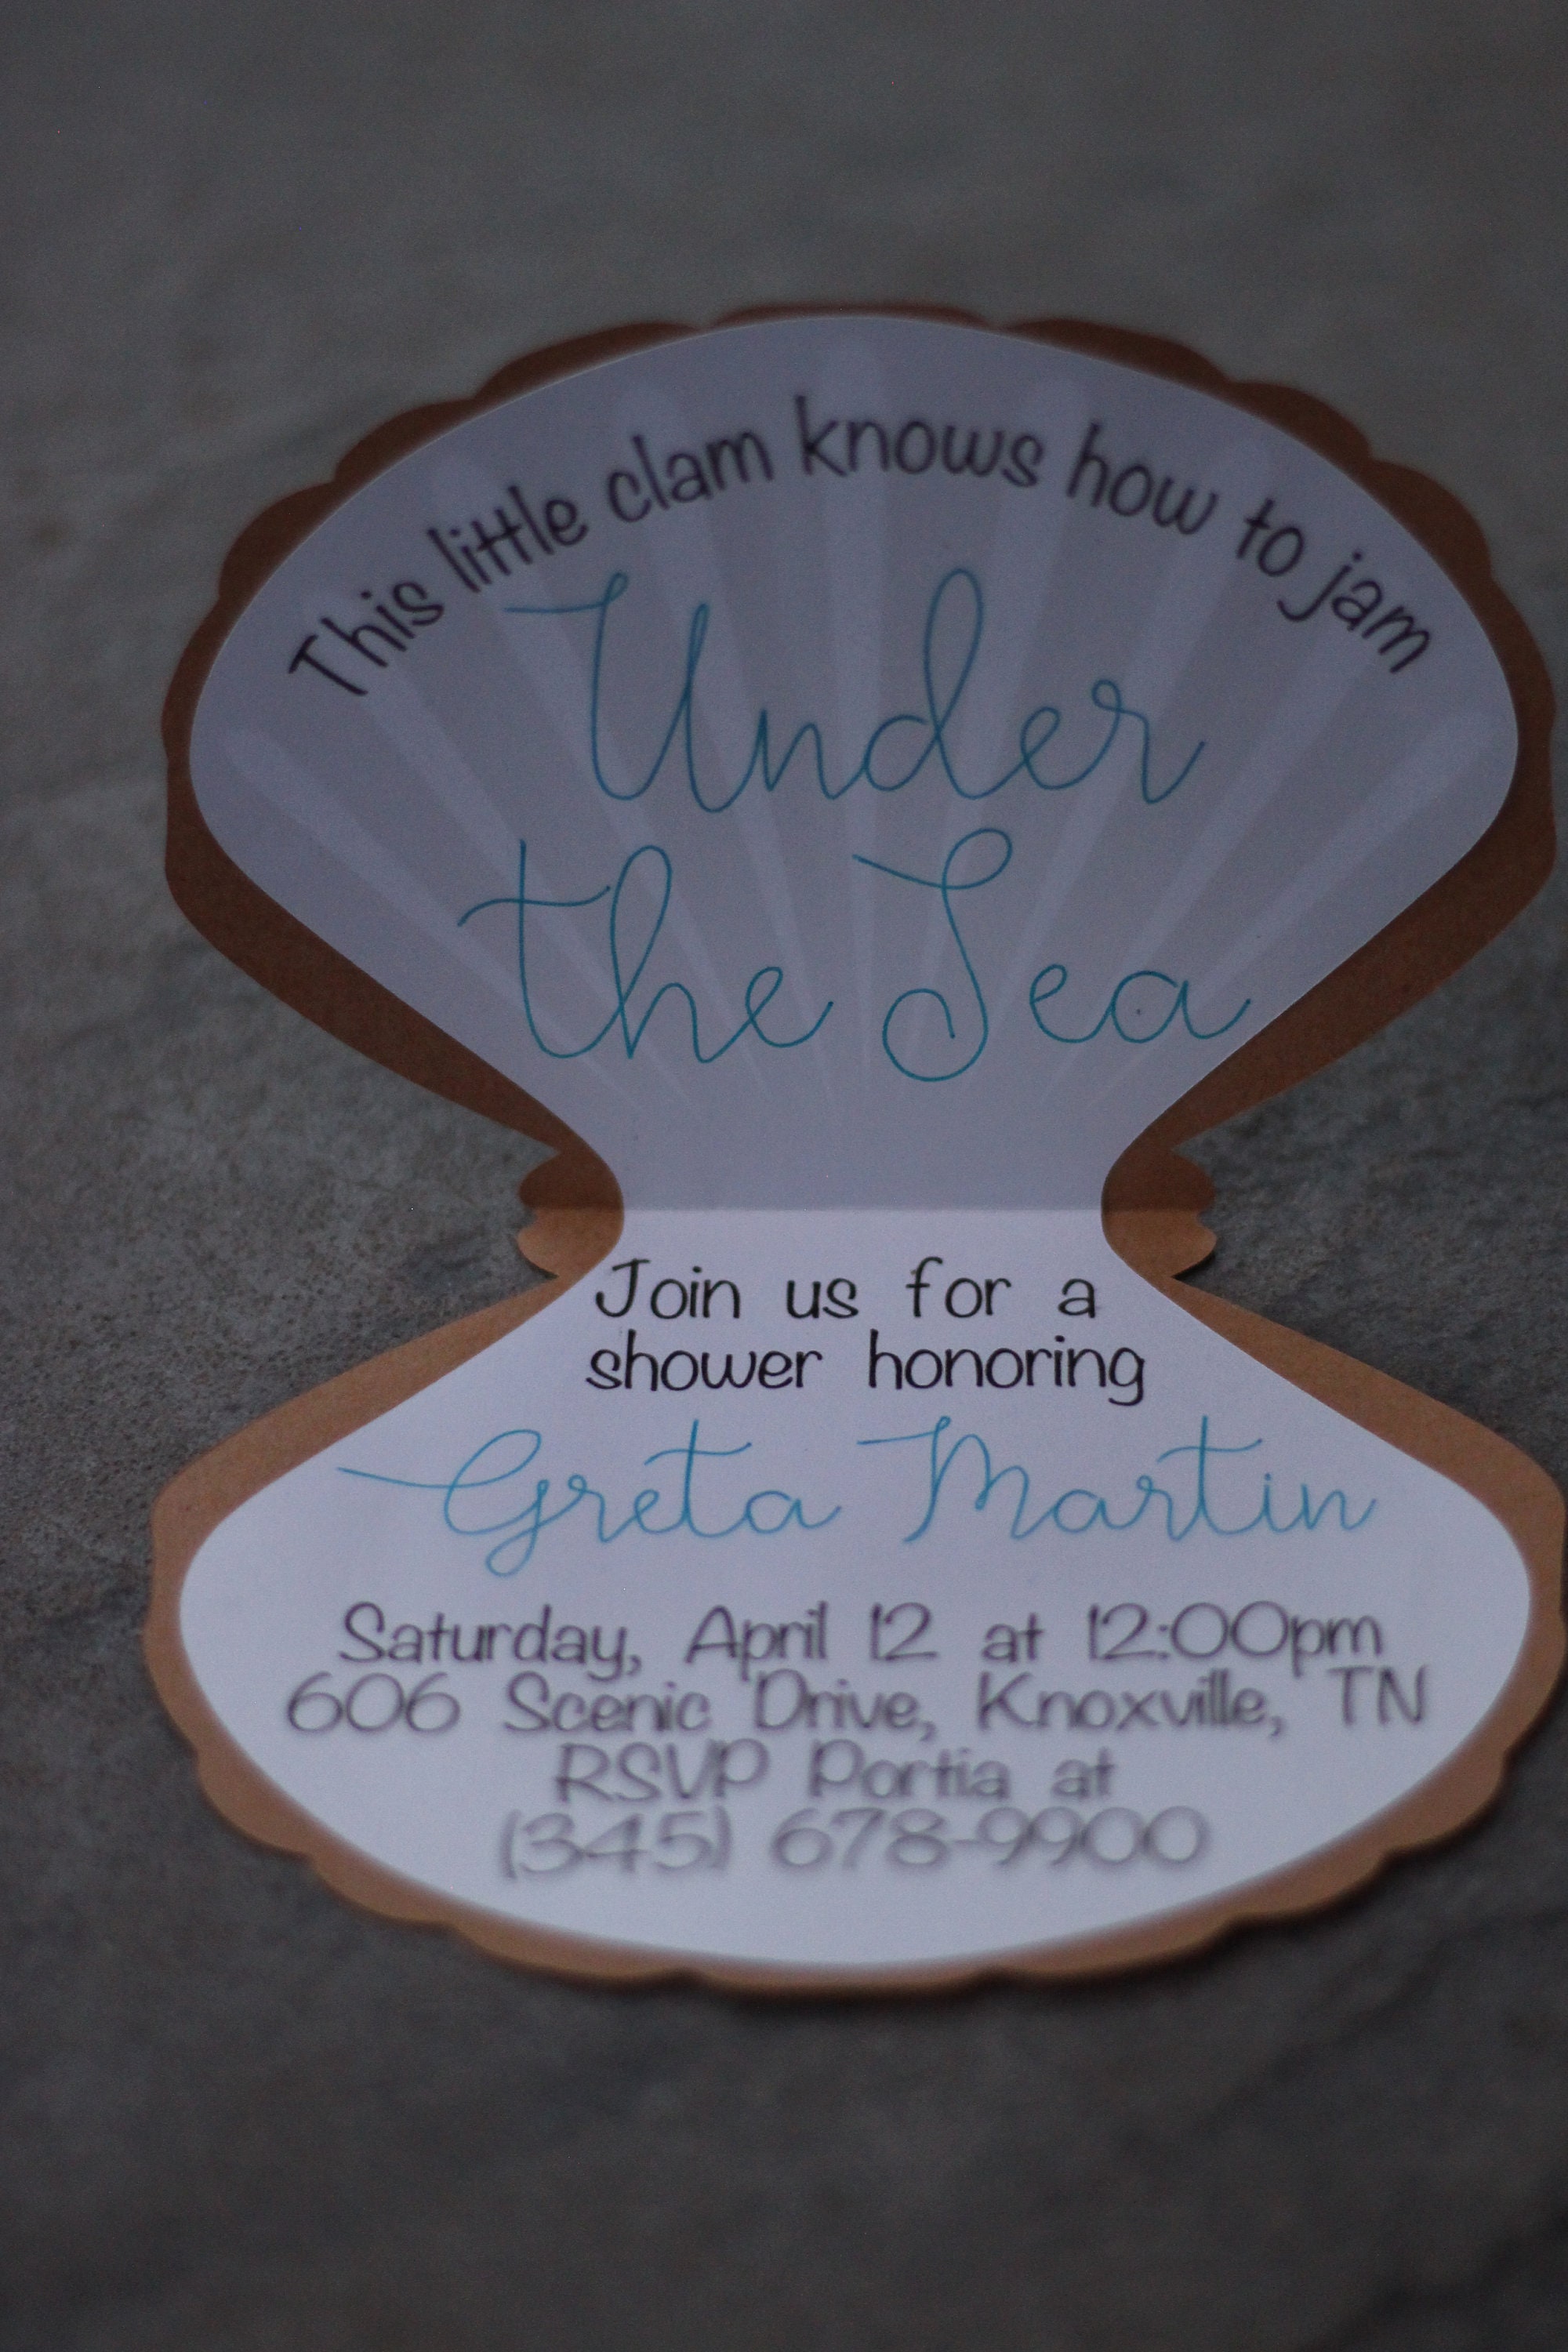 This little clam knows how to jam
Under
the Sea
Join us for a
shower honoring
Greta Martin
Saturday, April 12 at 12:00pm
606 Scenic Drive, Knoxville, TN
RSVP Portia at
(345) 678-9900